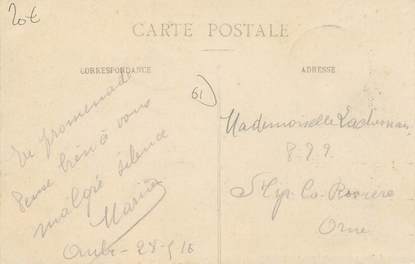 20€
CARTE POSTALE
CORRESPONDANCE
ADRESSE
61
En promenade
Pense bien à vous
malgré silence
Maria
28-5 16
Mademoiselle
St Cyr-La-Rosière
Orne